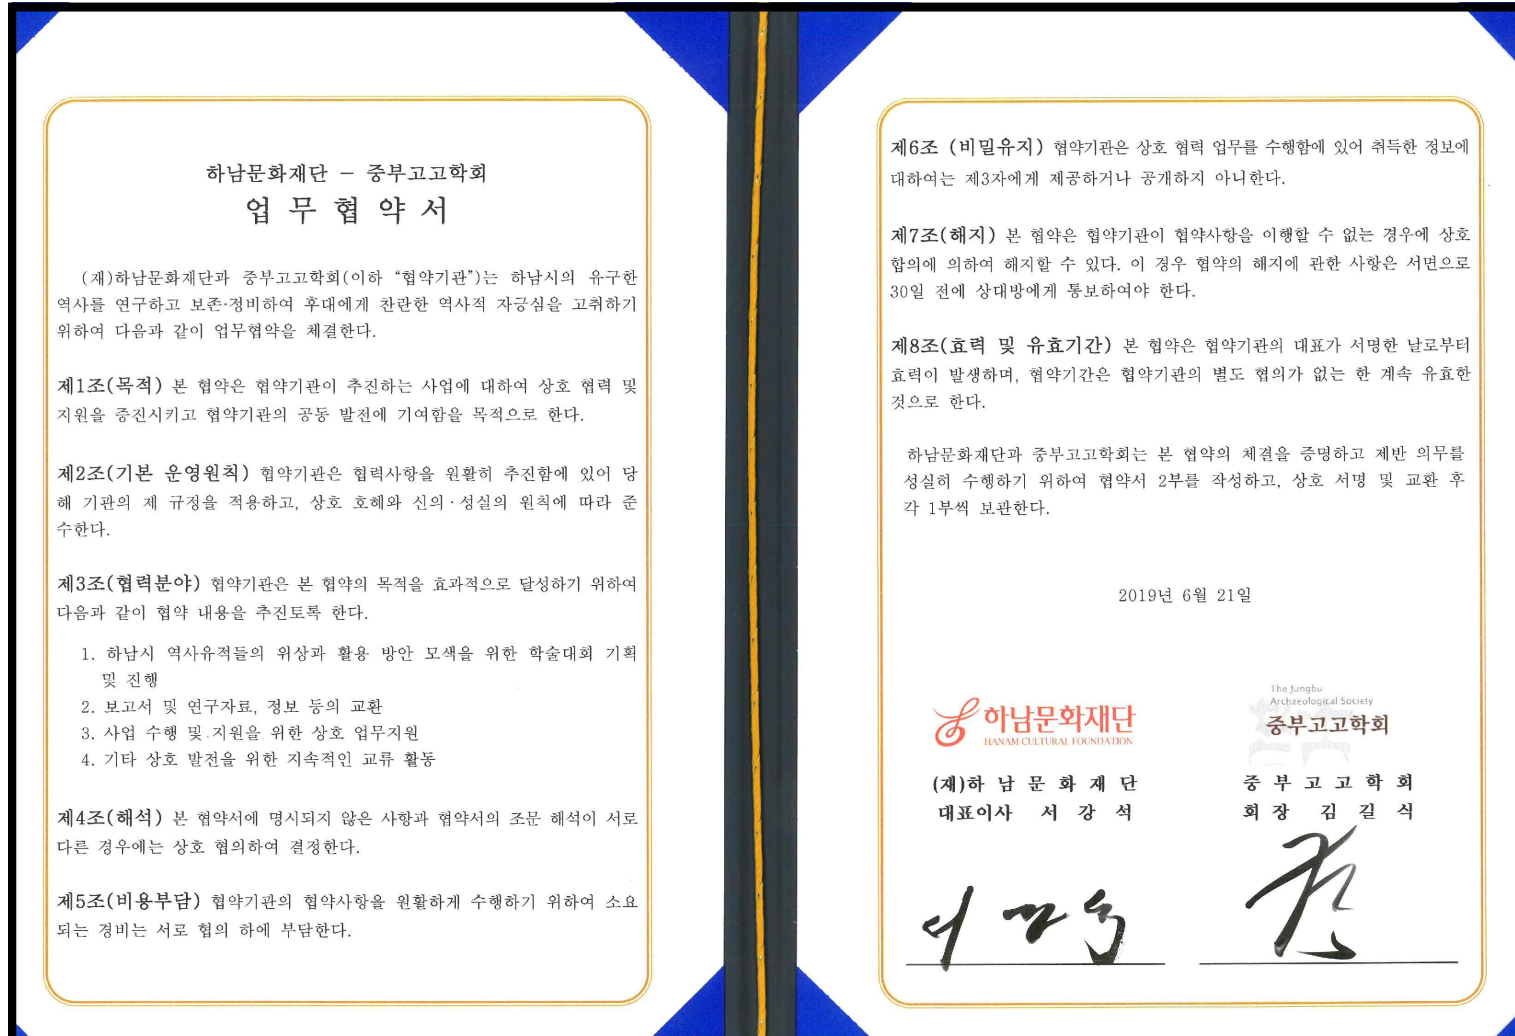 하남문화재단 – 중부고고학회
업 무 협 약 서
(재)하남문화재단과 중부고고학회(이하 “협약기관”)는 하남시의 유구한
역사를 연구하고 보존·정비하여 후대에게 찬란한 역사적 자긍심을 고취하기
위하여 다음과 같이 업무협약을 체결한다.
제1조(목적) 본 협약은 협약기관이 추진하는 사업에 대하여 상호 협력 및
지원을 증진시키고 협약기관의 공동 발전에 기여함을 목적으로 한다.
제2조(기본 운영원칙) 협약기관은 협력사항을 원활히 추진함에 있어 당
해 기관의 제 규정을 적용하고, 상호 호혜와 신의·성실의 원칙에 따라 준
수한다.
제3조(협력분야) 협약기관은 본 협약의 목적을 효과적으로 달성하기 위하여
다음과 같이 협약 내용을 추진토록 한다.
1. 하남시 역사유적들의 위상과 활용 방안 모색을 위한 학술대회 기획
및 진행
2. 보고서 및 연구자료, 정보 등의 교환
3. 사업 수행 및 지원을 위한 상호 업무지원
4. 기타 상호 발전을 위한 지속적인 교류 활동
제4조(해석) 본 협약서에 명시되지 않은 사항과 협약서의 조문 해석이 서로
다른 경우에는 상호 협의하여 결정한다.
제5조(비용부담) 협약기관의 협약사항을 원활하게 수행하기 위하여 소요
되는 경비는 서로 협의 하에 부담한다.
제6조 (비밀유지) 협약기관은 상호 협력 업무를 수행함에 있어 취득한 정보에
대하여는 제3자에게 제공하거나 공개하지 아니한다.
제7조(해지) 본 협약은 협약기관이 협약사항을 이행할 수 없는 경우에 상호
합의에 의하여 해지할 수 있다. 이 경우 협약의 해지에 관한 사항은 서면으로
30일 전에 상대방에게 통보하여야 한다.
제8조(효력 및 유효기간) 본 협약은 협약기관의 대표가 서명한 날로부터
효력이 발생하며, 협약기간은 협약기관의 별도 협의가 없는 한 계속 유효한
것으로 한다.
하남문화재단과 중부고고학회는 본 협약의 체결을 증명하고 제반 의무를
성실히 수행하기 위하여 협약서 2부를 작성하고, 상호 서명 및 교환 후
각 1부씩 보관한다.
2019년 6월 21일
하남문화재단
HANAM CULTURAL FOUNDATION
(재)하 남 문 화 재 단
대표이사 서 강 석
The Jungbu
Archaeological Society
중부고고학회
중 부 고 고 학 회
회 장 김 길 식